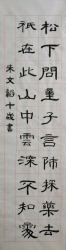 松下問童子言師採藥去
祇在此山中雲深不知處
朱文韜十歲書